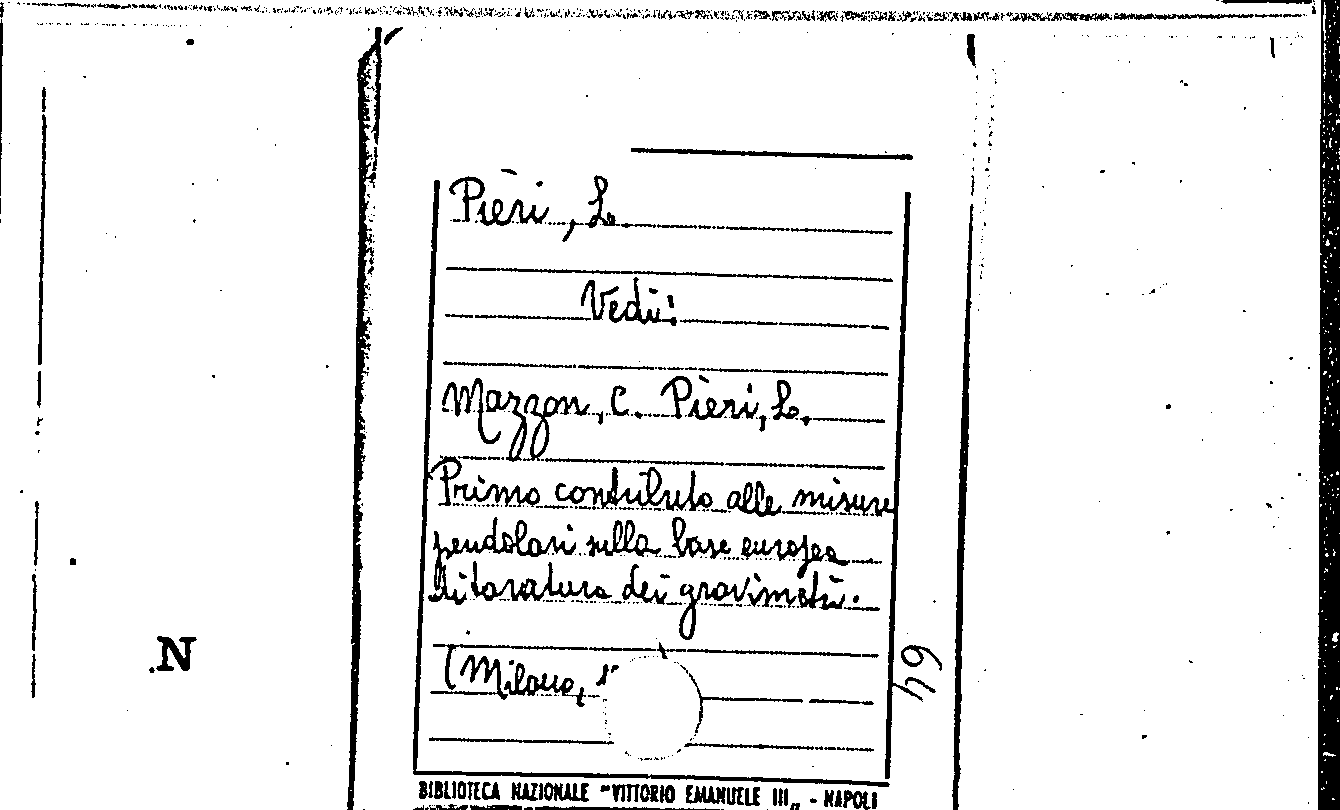 Pieri, L.
Vedi:
Mazzon, C. Pieri, L.
Primo contributo alle misure
pendolari sulla base europea
di taratura dei gravimetri.
(Milano,
64
N
BIBLIOTECA NAZIONALE "VITTORIO EMANUELE III„ - NAPOLI